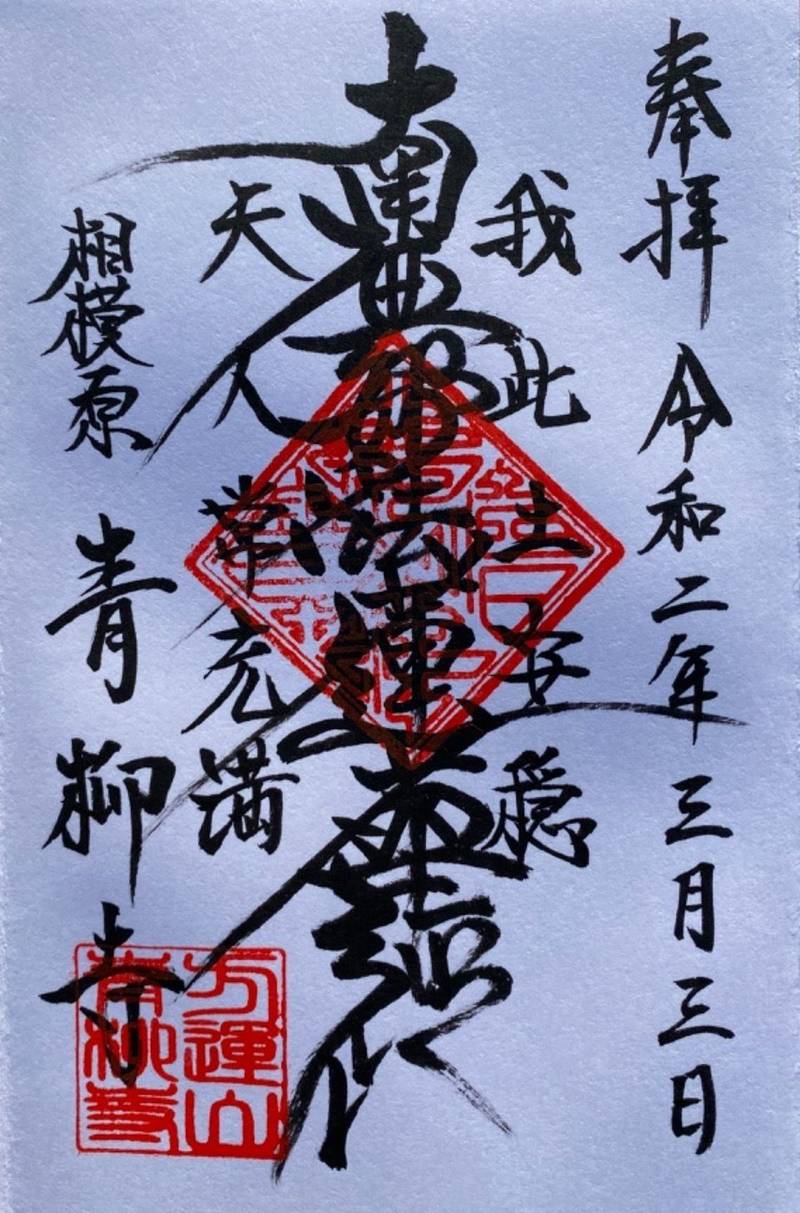 奉拝 令和二年三月三日
我此土安穏
南無妙法蓮華経
天人常充満
相模原 青柳寺
方運山
青柳寺